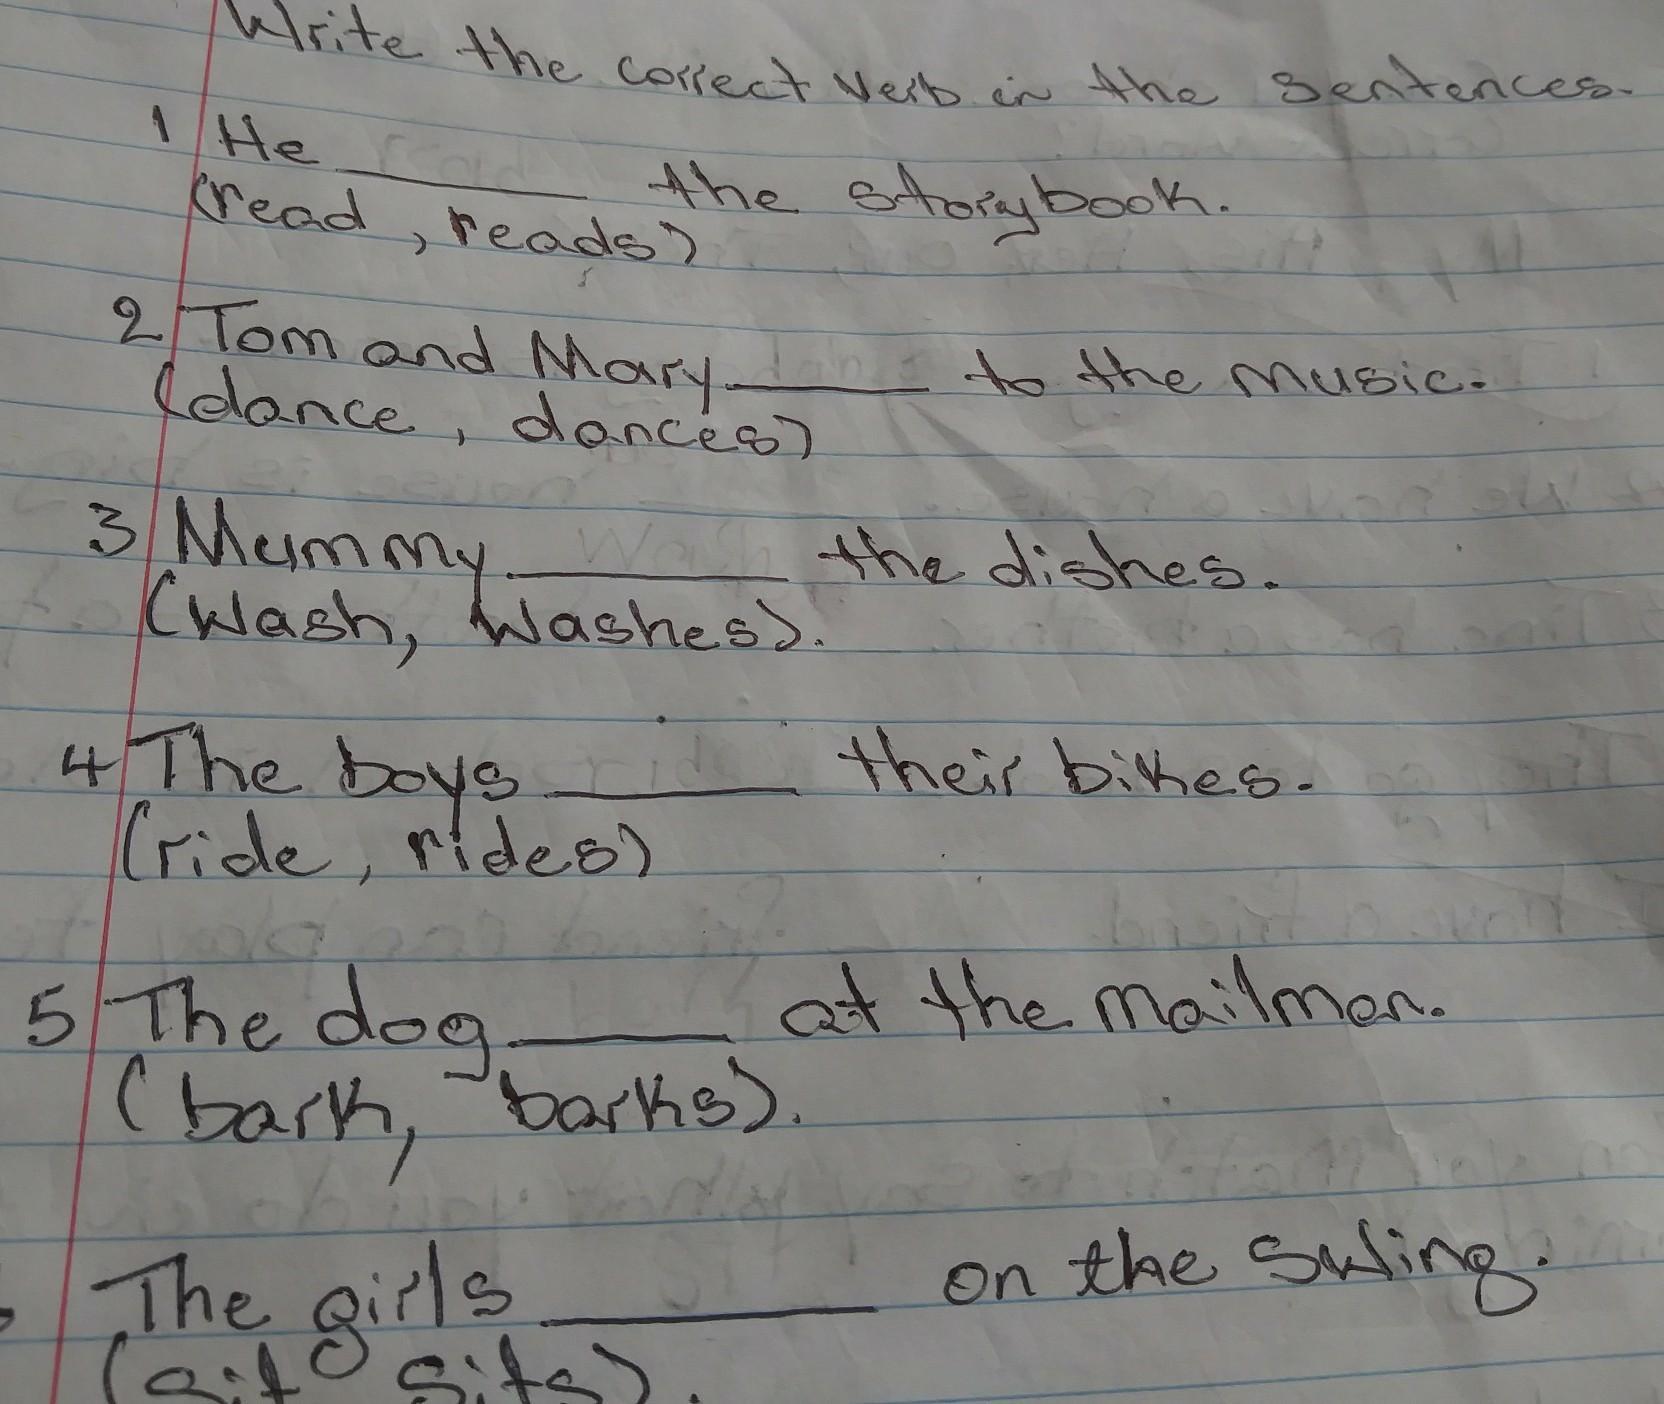 Write the correct verb in the sentences.
1 He ______ the storybook.
(read, reads)
2 Tom and Mary ______ to the music.
(dance, dances)
3 Mummy ______ the dishes.
(Wash, Washes).
4 The boys ______ their bikes.
(ride, rides)
5 The dog ______ at the mailman.
(bark, barks).
The girls ______ on the swing.
(sit sits).